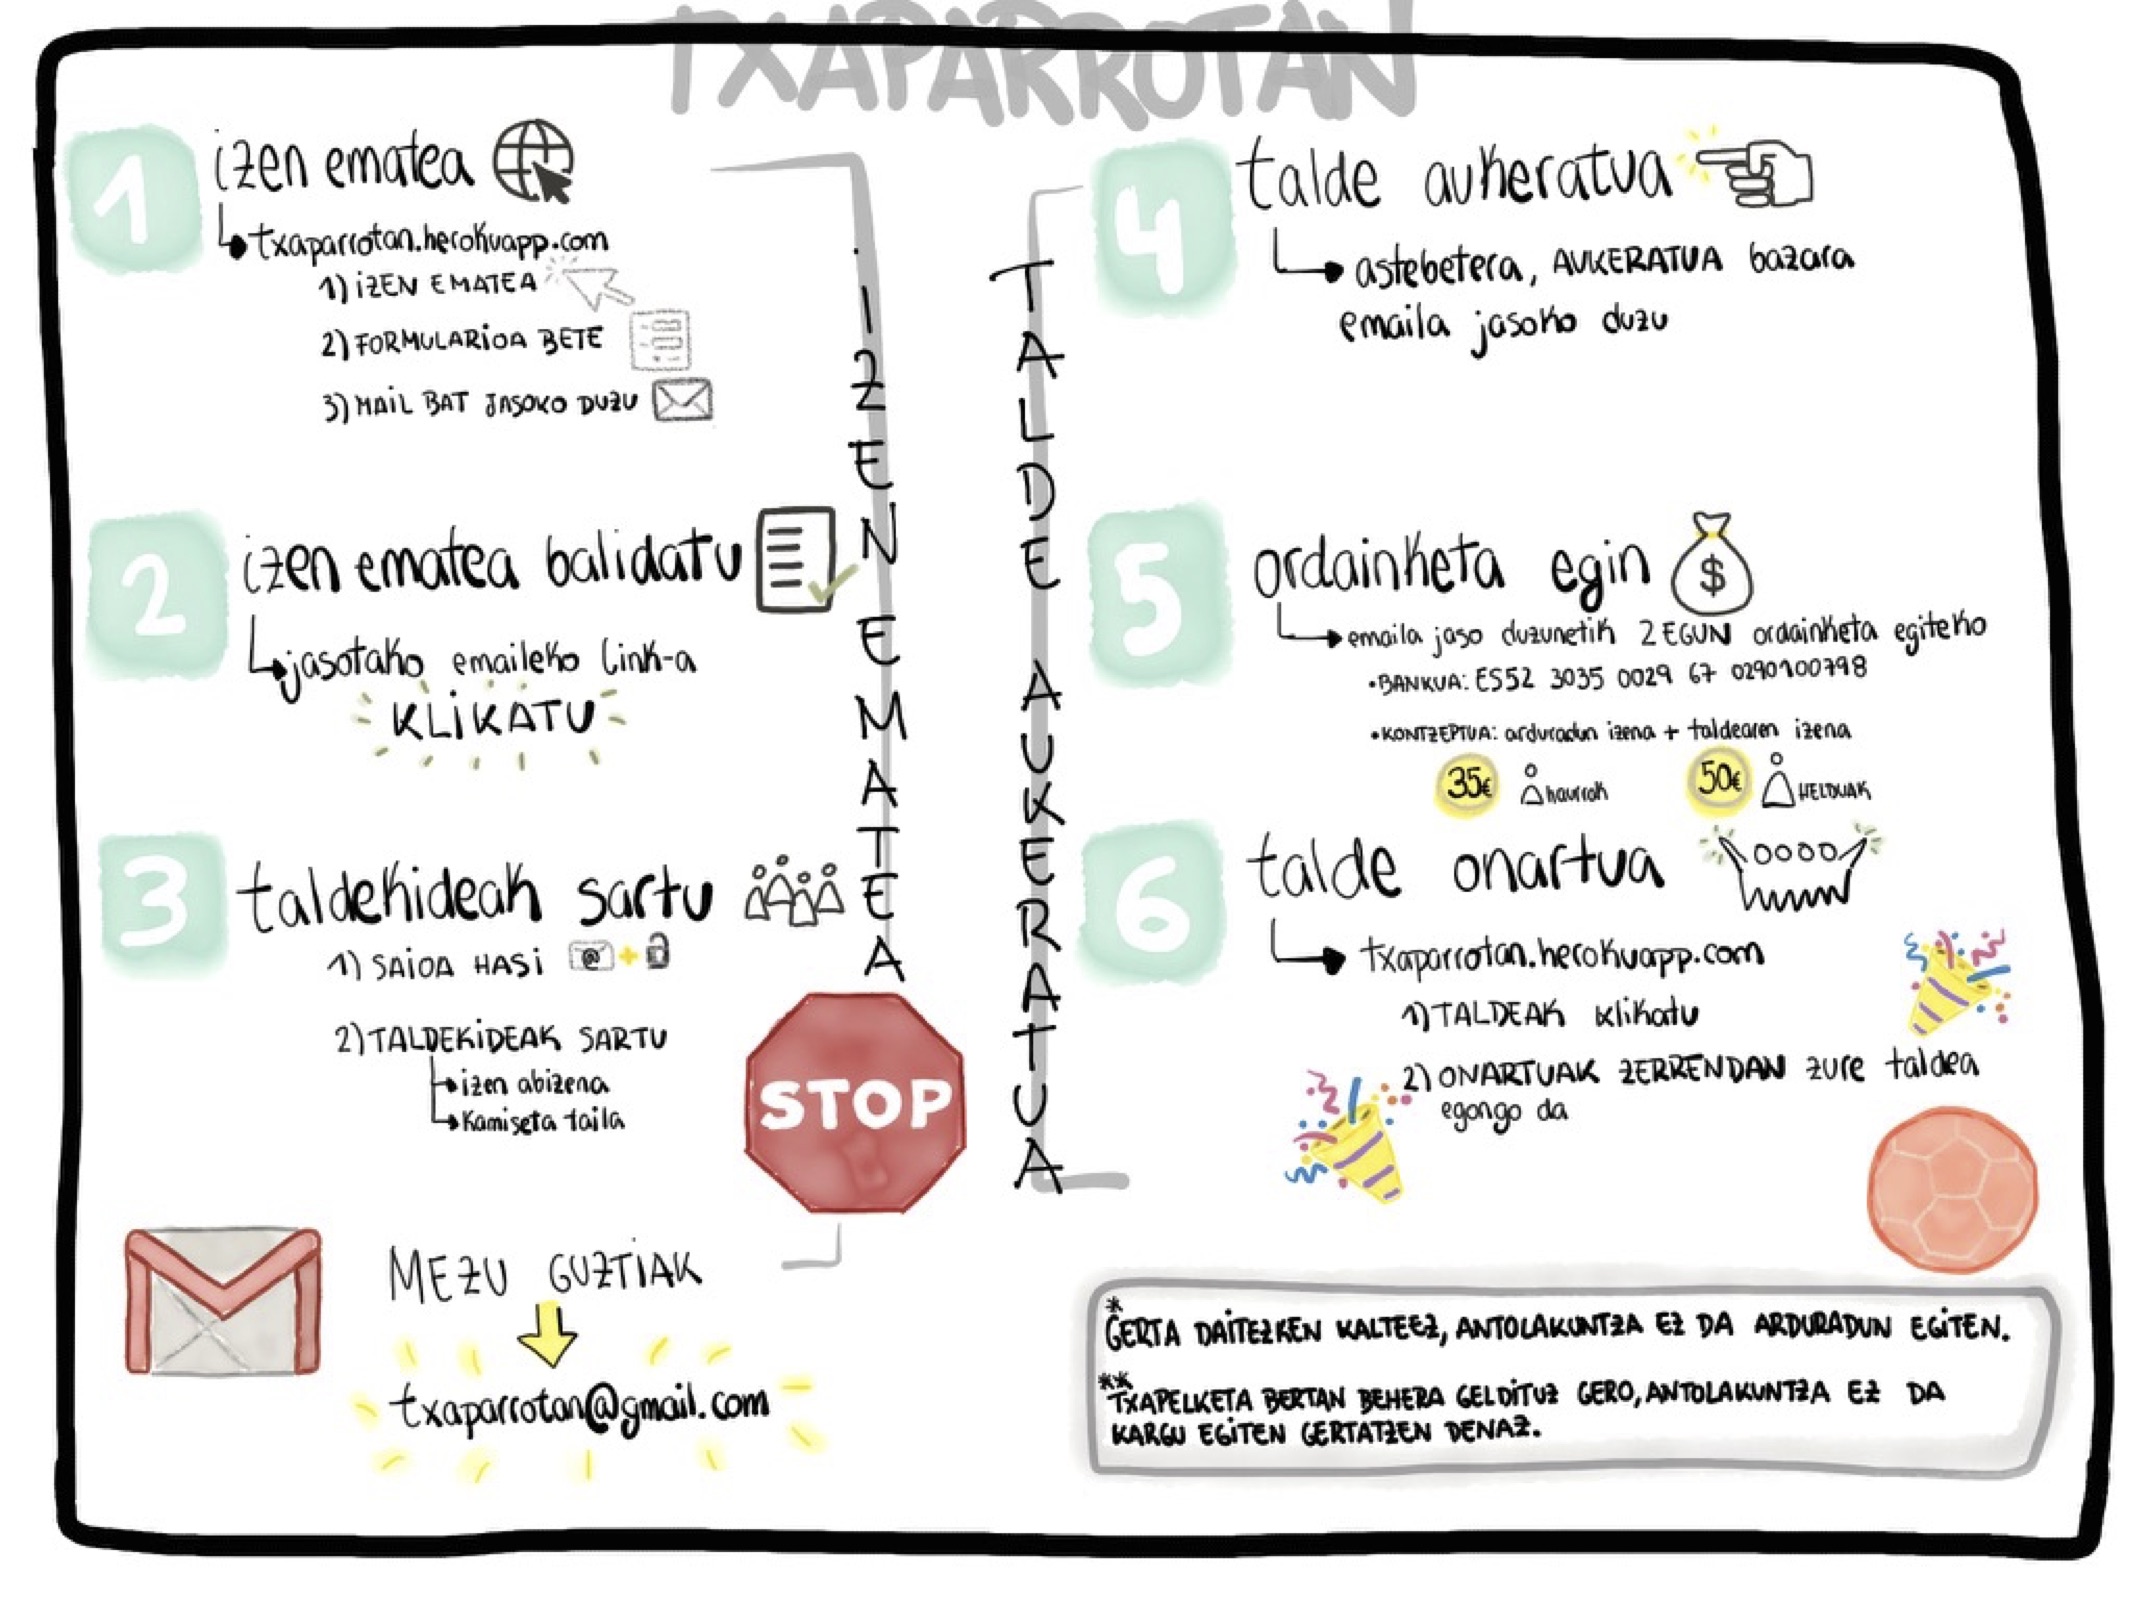 TXAPARROTAN
1
izen ematea
txaparrotan.herokuapp.com
1) IZEN EMATEA
2) FORMULARIOA BETE
3) MAIL BAT JASOKO DUZU
2
izen ematea balidatu
jasotako emaileko link-a
KLIKATU
3
taldekideak sartu
1) SAIOA HASI @ +
2) TALDEKIDEAK SARTU
izen abizena
kamiseta taila
IZEN EMATEA
STOP
MEZU GUZTIAK
txaparrotan@gmail.com
TALDE AUKERATUA
4
talde aukeratua
astebetera, AUKERATUA bazara
emaila jasoko duzu
5
ordainketa egin
$
emaila jaso duzunetik 2 EGUN ordainketa egiteko
• BANKUA: ES52 3035 0029 67 0290100798
• KONTZEPTUA: arduradun izena + taldearen izena
35€ haurrak 50€ HELDUAK
6
talde onartua
txaparrotan.herokuapp.com
1) TALDEAK klikatu
2) ONARTUAK ZERRENDAN zure taldea
egongo da
* GERTA DAITEZKEN KALTEEZ, ANTOLAKUNTZA EZ DA ARDURADUN EGITEN.
** TXAPELKETA BERTAN BEHERA GELDITUZ GERO, ANTOLAKUNTZA EZ DA
KARGU EGITEN GERTATZEN DENAZ.